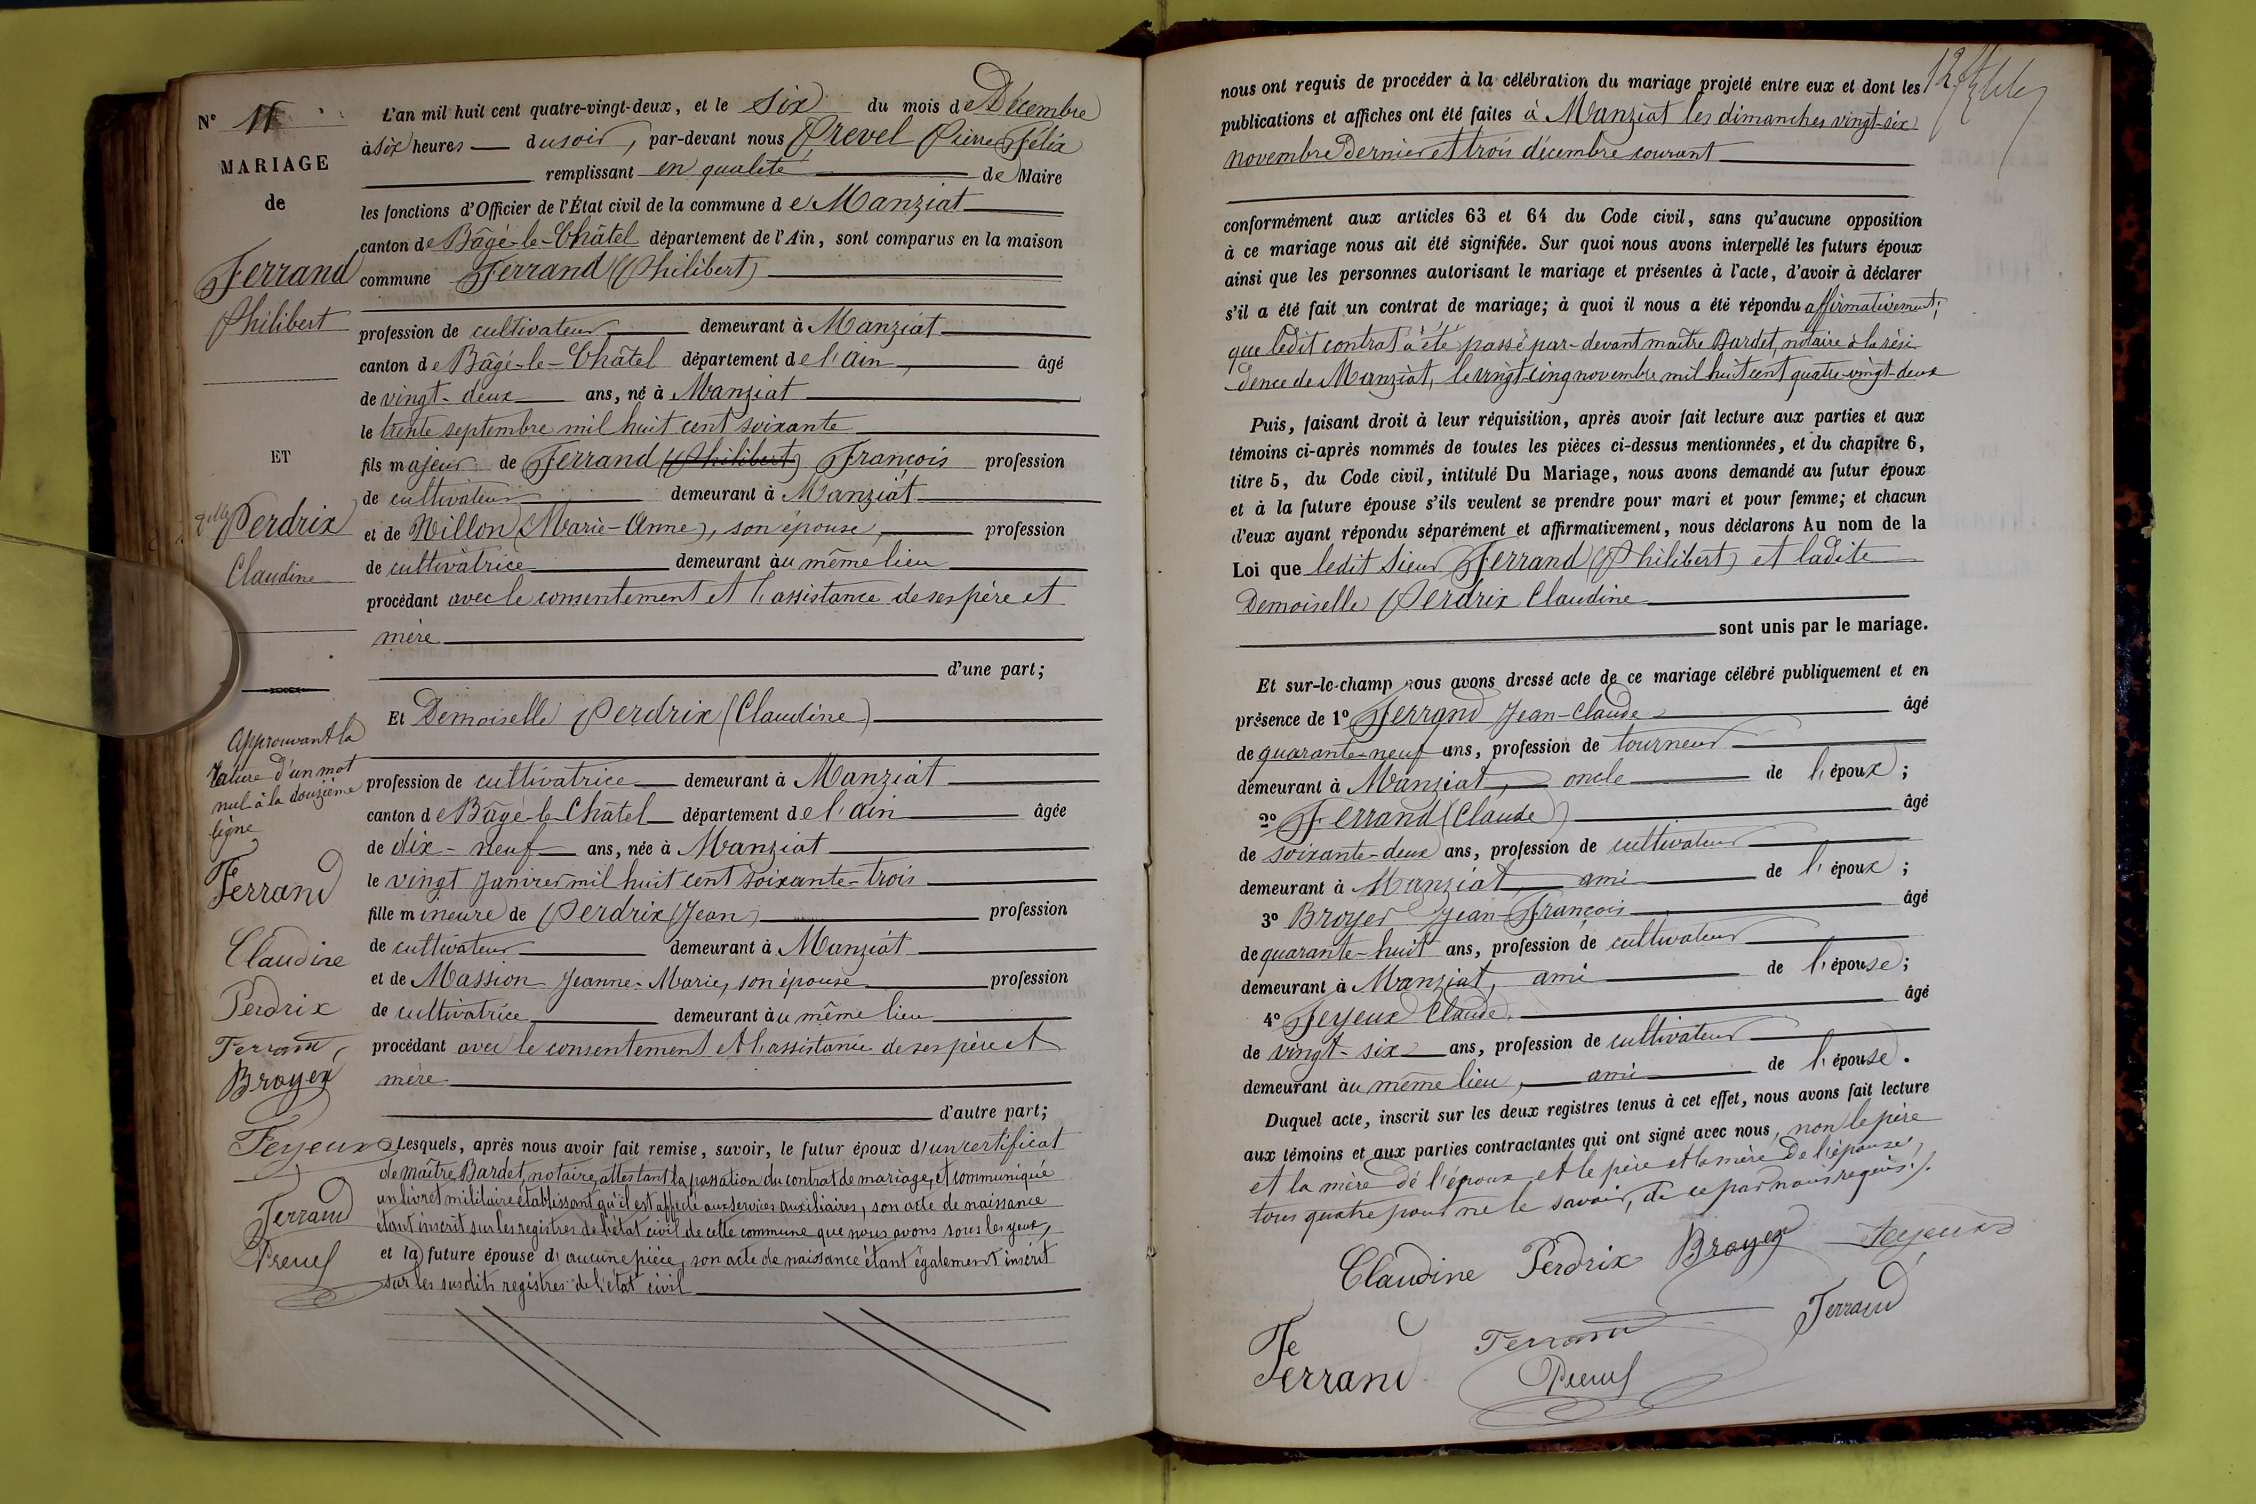 N° 11
MARIAGE
de
Ferrand
Philibert
ET
Dlle Perdrix
Claudine
Approuvant la
rature d'un mot
nul à la douzième
ligne
Ferrand
Claudine
Perdrix
Ferrand
Broyer
Feyeux
Ferrand
Prevel
L'an mil huit cent quatre-vingt-deux, et le six du mois de Décembre
à six heures du soir, par-devant nous Prevel Pierre Félix
remplissant en qualité de Maire
les fonctions d'Officier de l'État civil de la commune de Manziat
canton de Bâgé-le-Châtel département de l'Ain, sont comparus en la maison
commune Ferrand (Philibert)
profession de cultivateur demeurant à Manziat
canton de Bâgé-le-Châtel département de l'ain, âgé
de vingt-deux ans, né à Manziat
le trente septembre mil huit cent soixante
fils majeur de Ferrand (Philibert) François profession
de cultivateur demeurant à Manziat
et de Willon (Marie-Anne), son épouse, profession
de cultivatrice demeurant au même lieu
procédant avec le consentement et l'assistance de ses père et
mère
d'une part;
Et Demoiselle Perdrix (Claudine)
profession de cultivatrice demeurant à Manziat
canton de Bâgé-le-Châtel département de l'ain âgée
de dix-neuf ans, née à Manziat
le vingt janvier mil huit cent soixante-trois
fille mineure de Perdrix (Jean) profession
de cultivateur demeurant à Manziat
et de Massion Jeanne-Marie, son épouse profession
de cultivatrice demeurant au même lieu
procédant avec le consentement et l'assistance de ses père et
mère
d'autre part;
Lesquels, après nous avoir fait remise, savoir, le futur époux d'un certificat
de maître Bardet, notaire, attestant la passation du contrat de mariage, et communiqué
un livret militaire établissant qu'il est affecté aux services auxiliaires, son acte de naissance
étant inscrit sur les registres de l'état civil de cette commune que nous avons sous les yeux,
et la future épouse d'aucune pièce, son acte de naissance étant également inscrit
sur les susdits registres de l'état civil
nous ont requis de procéder à la célébration du mariage projeté entre eux et dont les
publications et affiches ont été faites à Manziat les dimanches vingt-six
novembre dernier et trois décembre courant
conformément aux articles 63 et 64 du Code civil, sans qu'aucune opposition
à ce mariage nous ait été signifiée. Sur quoi nous avons interpellé les futurs époux
ainsi que les personnes autorisant le mariage et présentes à l'acte, d'avoir à déclarer
s'il a été fait un contrat de mariage; à quoi il nous a été répondu affirmativement;
que ledit contrat a été passé par-devant maître Bardet, notaire à la rési-
dence de Manziat, le vingt-cinq novembre mil huit cent quatre-vingt-deux
Puis, faisant droit à leur réquisition, après avoir fait lecture aux parties et aux
témoins ci-après nommés de toutes les pièces ci-dessus mentionnées, et du chapitre 6,
titre 5, du Code civil, intitulé Du Mariage, nous avons demandé au futur époux
et à la future épouse s'ils veulent se prendre pour mari et pour femme; et chacun
d'eux ayant répondu séparément et affirmativement, nous déclarons Au nom de la
Loi que ledit sieur Ferrand (Philibert) et ladite
Demoiselle Perdrix Claudine
sont unis par le mariage.
Et sur-le-champ nous avons dressé acte de ce mariage célébré publiquement et en
présence de 1° Ferrand Jean-Claude âgé
de quarante-neuf ans, profession de tourneur
demeurant à Manziat, oncle de l'époux;
2° Ferrand (Claude) âgé
de soixante-deux ans, profession de cultivateur
demeurant à Manziat, ami de l'époux;
3° Broyer Jean-François âgé
de quarante-huit ans, profession de cultivateur
demeurant à Manziat, ami de l'épouse;
4° Feyeux Claude âgé
de vingt-six ans, profession de cultivateur
demeurant au même lieu, ami de l'épouse.
Duquel acte, inscrit sur les deux registres tenus à cet effet, nous avons fait lecture
aux témoins et aux parties contractantes qui ont signé avec nous, non le père
et la mère de l'époux et le père et la mère de l'épouse,
tous quatre pour ne le savoir, de ce par nous requis.
Claudine Perdrix Broyer Feyeux
Fe
Ferrand Ferrand Ferrand
Prevel